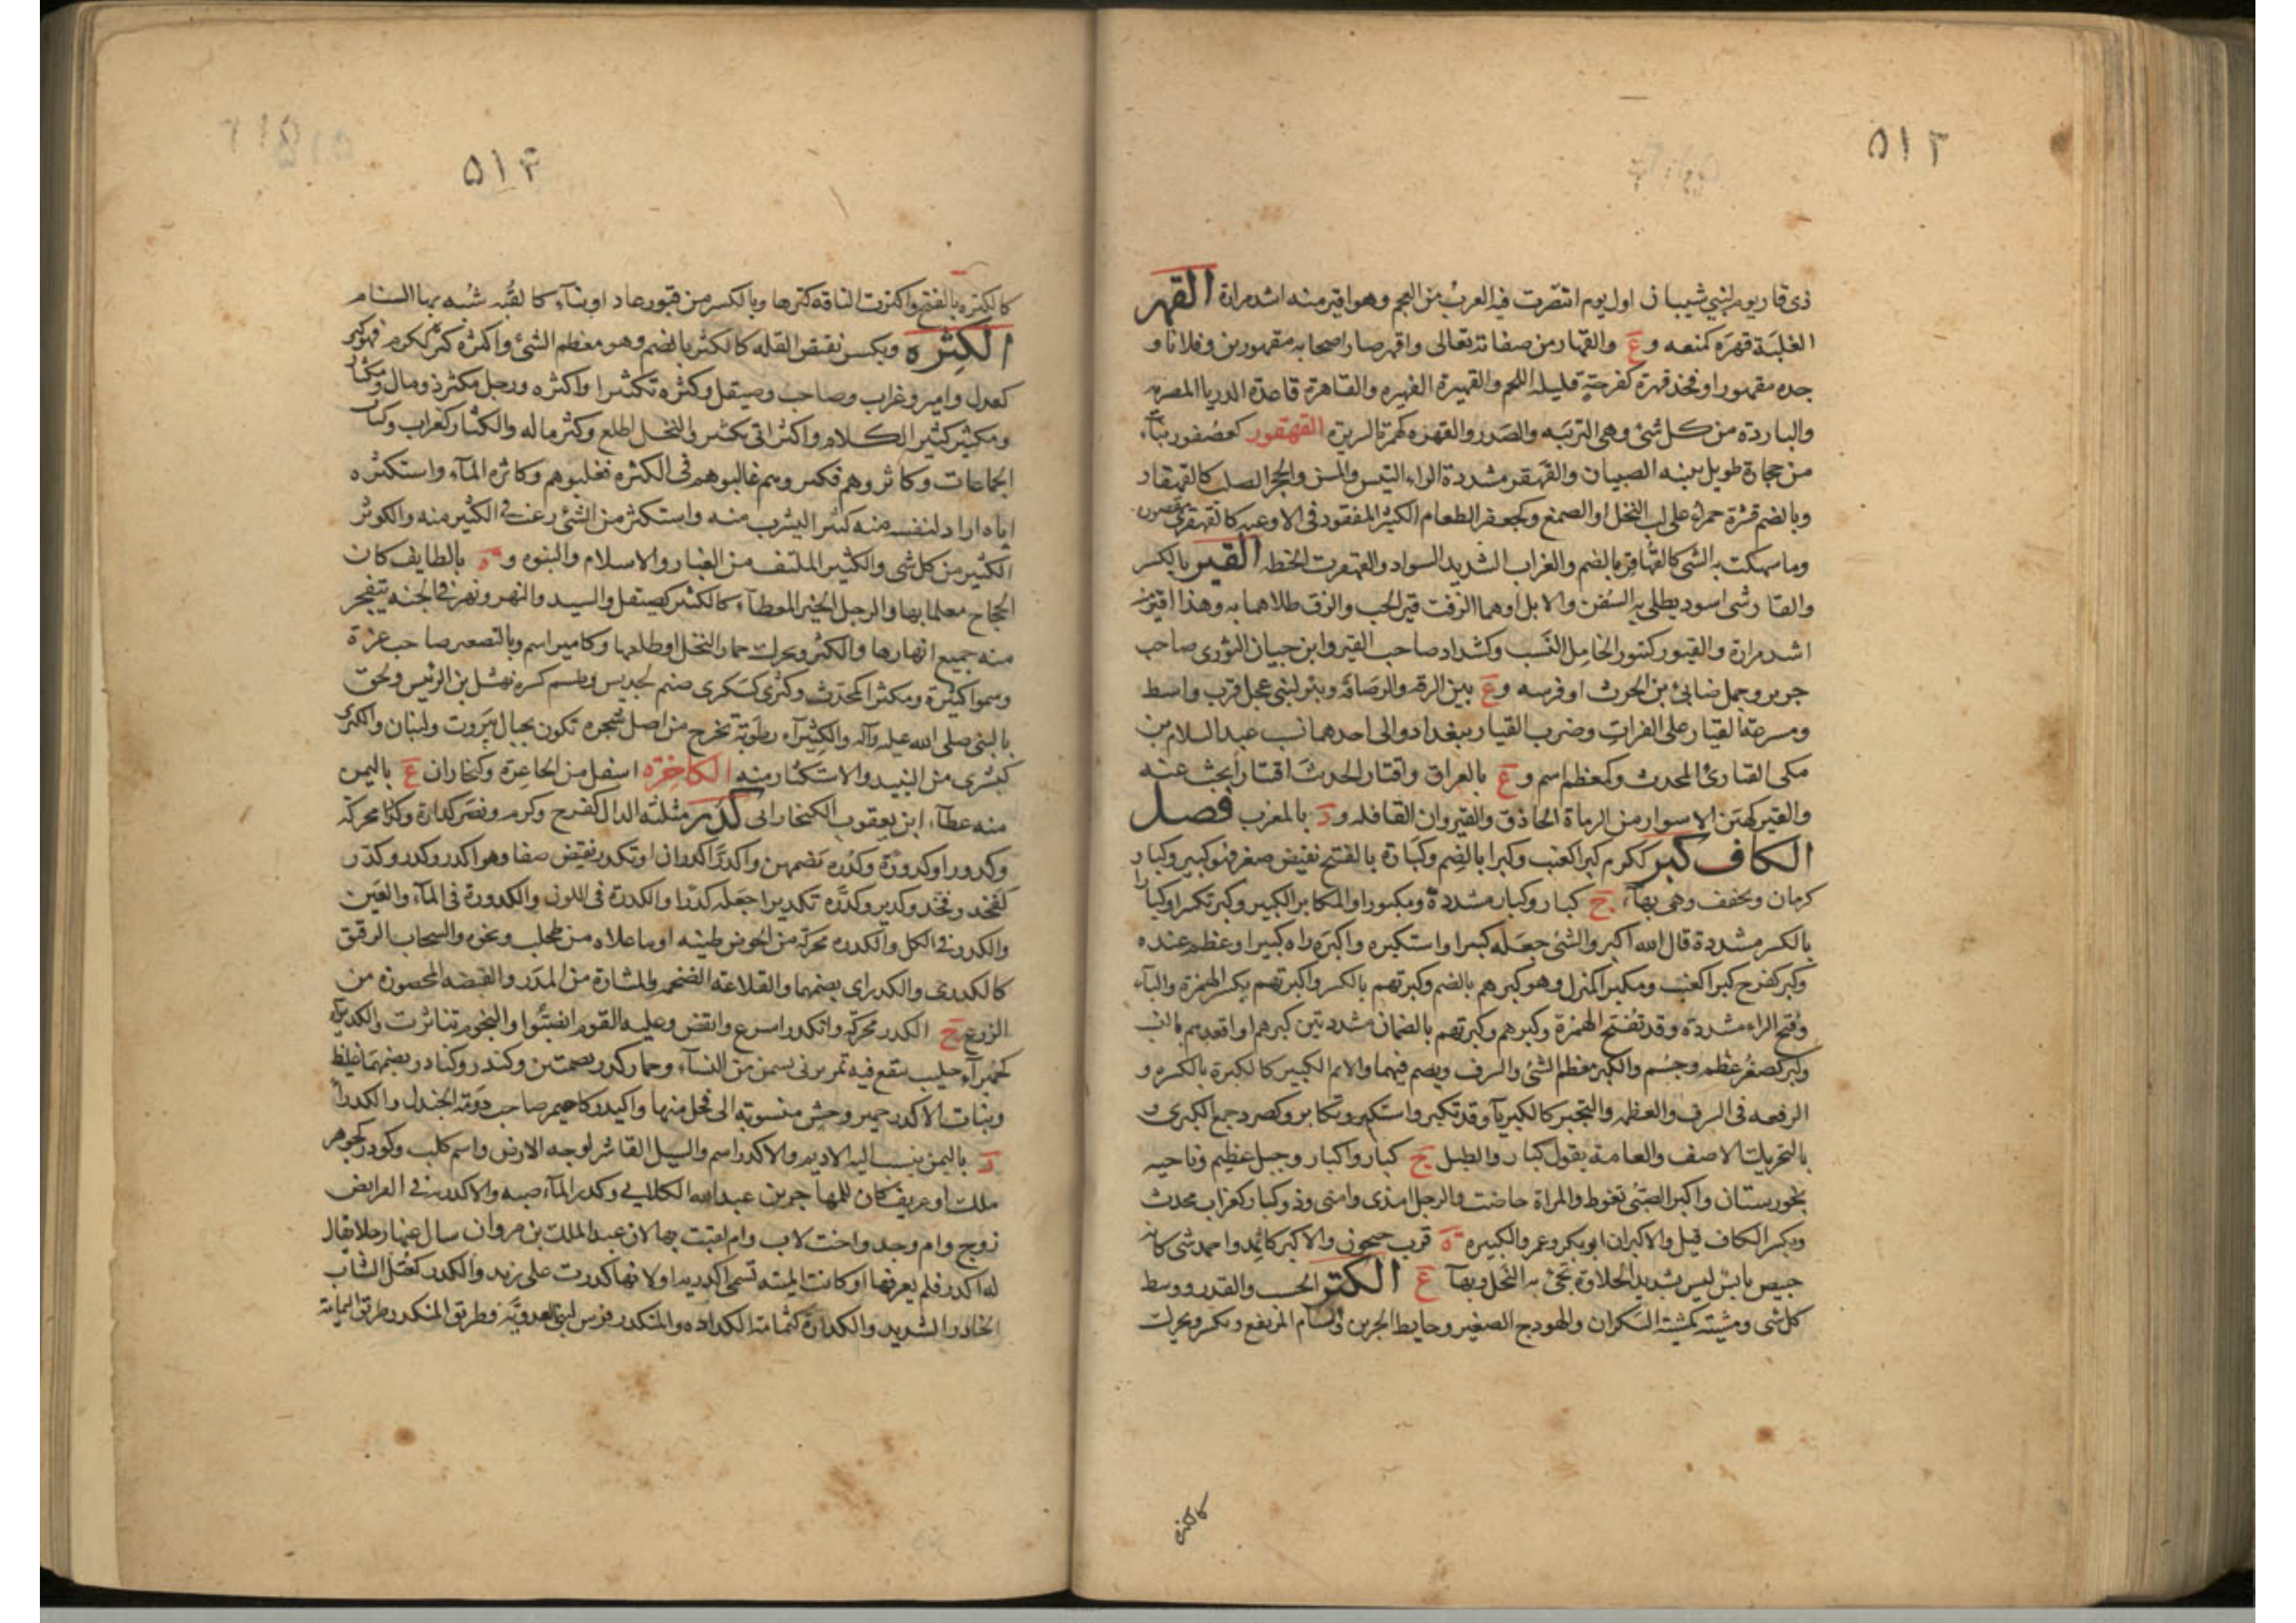 ٥١٢
ذى قار يوم لبنى شيبان اول يوم انتصرت فيه العرب من العجم وهو اقير منه اشد مرارة القهر
الغلبة قهره كمنعه و ع والقهار من صفاته تعالى واقهر صار اصحابه مقهورين وفلانا و
جده مقهورا وفخذ قهرة كفرحة قليله اللحم والقهيرة الفهيره والقاهرة قاعدة الديار المصريه
والباردة من كل شئ وهى التربيه والصدر والقهره كهمزة الشريرة القهقور كعصفور بناء
من حجارة طويل يبنيه الصبيان والقهقر مشددة الراء التيس والمسن والحجر الصلب كالقهقار
وبالضم قشرة حمراء على لب النخل او الصمغ وكجعفر الطعام الكثير المفقود فى الاوعيه كالقهقرى مقصور
وما سهكت به الشى كالقهاقر بالضم والغراب الشديد السواد والقهقرت الحنطه القير بالكسر
والقار شى اسود يطلى به السفن والابل او هما الزفت قير الحب والزق طلاهما به وهذا اقير منه
اشد مرارة والقيور كتنور الخامل النسب وكشداد صاحب القير وابن حيان الثورى صاحب
جرير وجمل ضابئ بن الحرث او فرسه و ع بين الرقه والرصافه وبئر لبنى عجل قرب واسط
ومشرعة القيار على الفرات وضرب القيار ببغداد والى احدهما نسب عبد السلام بن
مكى القيارئ المحدث وكمعظم اسم و ع بالعراق واقتار الحديث اقتيارا بحث عنه
والقير كهين الاسوار من الرماة الحاذق والقيروان القافله و د بالمغرب فصل
الكاف كبر ككرم كبرا كعنب وكبرا بالضم وكبارة بالفتح نقيض صغر فهو كبير وكبار
كرمان ويخفف وهى بهاء ج كبار وكبار مشددة ومكبورا والمكابر الكبير وكبر تكبيرا وكبارا
بالكسر مشددة قال الله اكبر والشئ جعله كبيرا واستكبره واكبره راه كبيرا وعظم عنده
وكبر كفرح كبرا كعنب ومكبرا كمنزل وهو كبرهم بالضم وكبرتهم بالكسر واكبرتهم بكسر الهمزة والباء
وفتح الراء مشددة وقد تفتح الهمزة وكبرهم وكبرتهم بالضمات مشددتين كبرهم او اقعدهم بالنسب
وكبر كصغر عظم وجسم والكبر معظم الشئ والشرف ويضم فيهما والاثم الكبير كالكبرة بالكسره و
الرفعه فى الشرف والعظمه والتجبر كالكبرياء وقد تكبر واستكبر وتكابر وكصرد جمع الكبرى و
بالتحريك الاصف والعامة يقول كبار والطبل ج كبار واكبار وجبل عظيم وناحيه
بخوزستان واكبر الصبى تغوط والمراة حاضت والرجل امذى وامنى وذو كبار كغراب محدث
وبكسر الكاف قيل والاكبران ابو بكر وعمر والكبيره ة قرب جيحون والاكبر كاثمد واحمد شى كانه
خبيص يابس ليس بشديد الحلاوة تجئ به النحل وبهاء ع الكتر الحسب والقدر ووسط
كل شى ومشيته كمشية السكران والهودج الصغير وحايط الجرين والسنام المرتفع ويكسر ويحرك
كالكتره
٥١٣
كالكتره بالفتح واكترت الناقه كترها وبالكسر من قبور عاد او بناء كالقبه شبه بها السنام
الكثره ويكسر نقيض القله كالكثر بالضم وهو معظم الشئ واكثره كثر ككرم فهو كثير
كعدل وامير وغراب وصاحب وصيقل وكثره تكثيرا واكثره ورجل مكثر ذو مال ومكثار
ومكثير كثير الكلام واكثر اتى بكثير والنخل اطلع وكثر ماله والكثار كغراب وكتاب
الجماعات وكاثروهم فكثروهم غالبوهم فى الكثره فغلبوهم وكاثره الماء واستكثره
اياه اراد لنفسه منه كثيرا ليشرب منه واستكثر من الشئ رغب فى الكثير منه والكوثر
الكثير من كل شى والكثير الملتف من الغبار والاسلام والنبوه و ة بالطايف كان
الحجاج معلما بها والرجل الخير المعطاء كالكثير كصيقل والسيد والنهر ونهر فى الجنه يتفجر
منه جميع انهارها والكثر ويحرك جمار النخل او طلعها وكامير اسم وبالتصغير صاحب عزة
وسموا كثيرة ومكثرا كمحدث وكثرى كسكرى صنم لجديس وطسم كسره نهشل بن الرئيس ولحق
بالنبى صلى الله عليه وآله والكثيراء رطوبة تخرج من اصل شجره تكون بجبال بيروت ولبنان والكثرى
كبشرى من النبيذ والاستكثار منه الكاخره اسفل من الجاعرة وكيخاران ع باليمن
منه عطاء ابن يعقوب الكيخارانى كدر مثلثه الدال كفرح وكرم ونصر كدارة وكدرا محركة
وكدورا وكدورة وكدره بضمهن واكدر اكدرارا وتكدر نقيض صفا وهو اكدر وكدر وكدر
كفخذ وفخذ وكدير وكدره تكديرا جعله كدرا والكدرة فى اللون والكدورة فى الماء والعين
والكدر فى الكل والكدره محركة من الحوض طينه او ما علاه من طحلب ونحوه والسحاب الرقيق
كالكدرى والكدارى بضمهما والقلاعه الضخمه والمشارة من المدر والقبضه المحصوده من
الزرع ج الكدر محركة وانكدر اسرع وانقض وعليه القوم انصبوا والنجوم تناثرت والكديراء
كحميراء حليب ينقع فيه تمر برنى يسمن من النساء وحمار كدر بضمتين وكندر وكنادر بضمهما غليظ
وبنات الاكدر حمير وحش منسوبة الى فحل منها واكيدر كاحيمر صاحب دومة الجندل والكدراء
د باليمن ينسب اليه الاديم والاكدر اسم والسيل القاشر لوجه الارض واسم كلب وكودر كجوهر
ملك او عريف كان للمهاجر بن عبد الله الكلابى وكدر الماء صبه والاكدريه فى الفرايض
زوج وام وجد واخت لاب وام لقبت بها لان عبد الملك بن مروان سال عنها رجلا يقال
له اكدر فلم يعرفها او كانت الميته تسمى اكدريه او لانها كدرت على زيد والكدر كعتل الشاب
الحادر الشديد والكدارة كثمامة الكداده والمنكدر فرس لبنى العدويه وطريق المنكدر طريق اليمامة